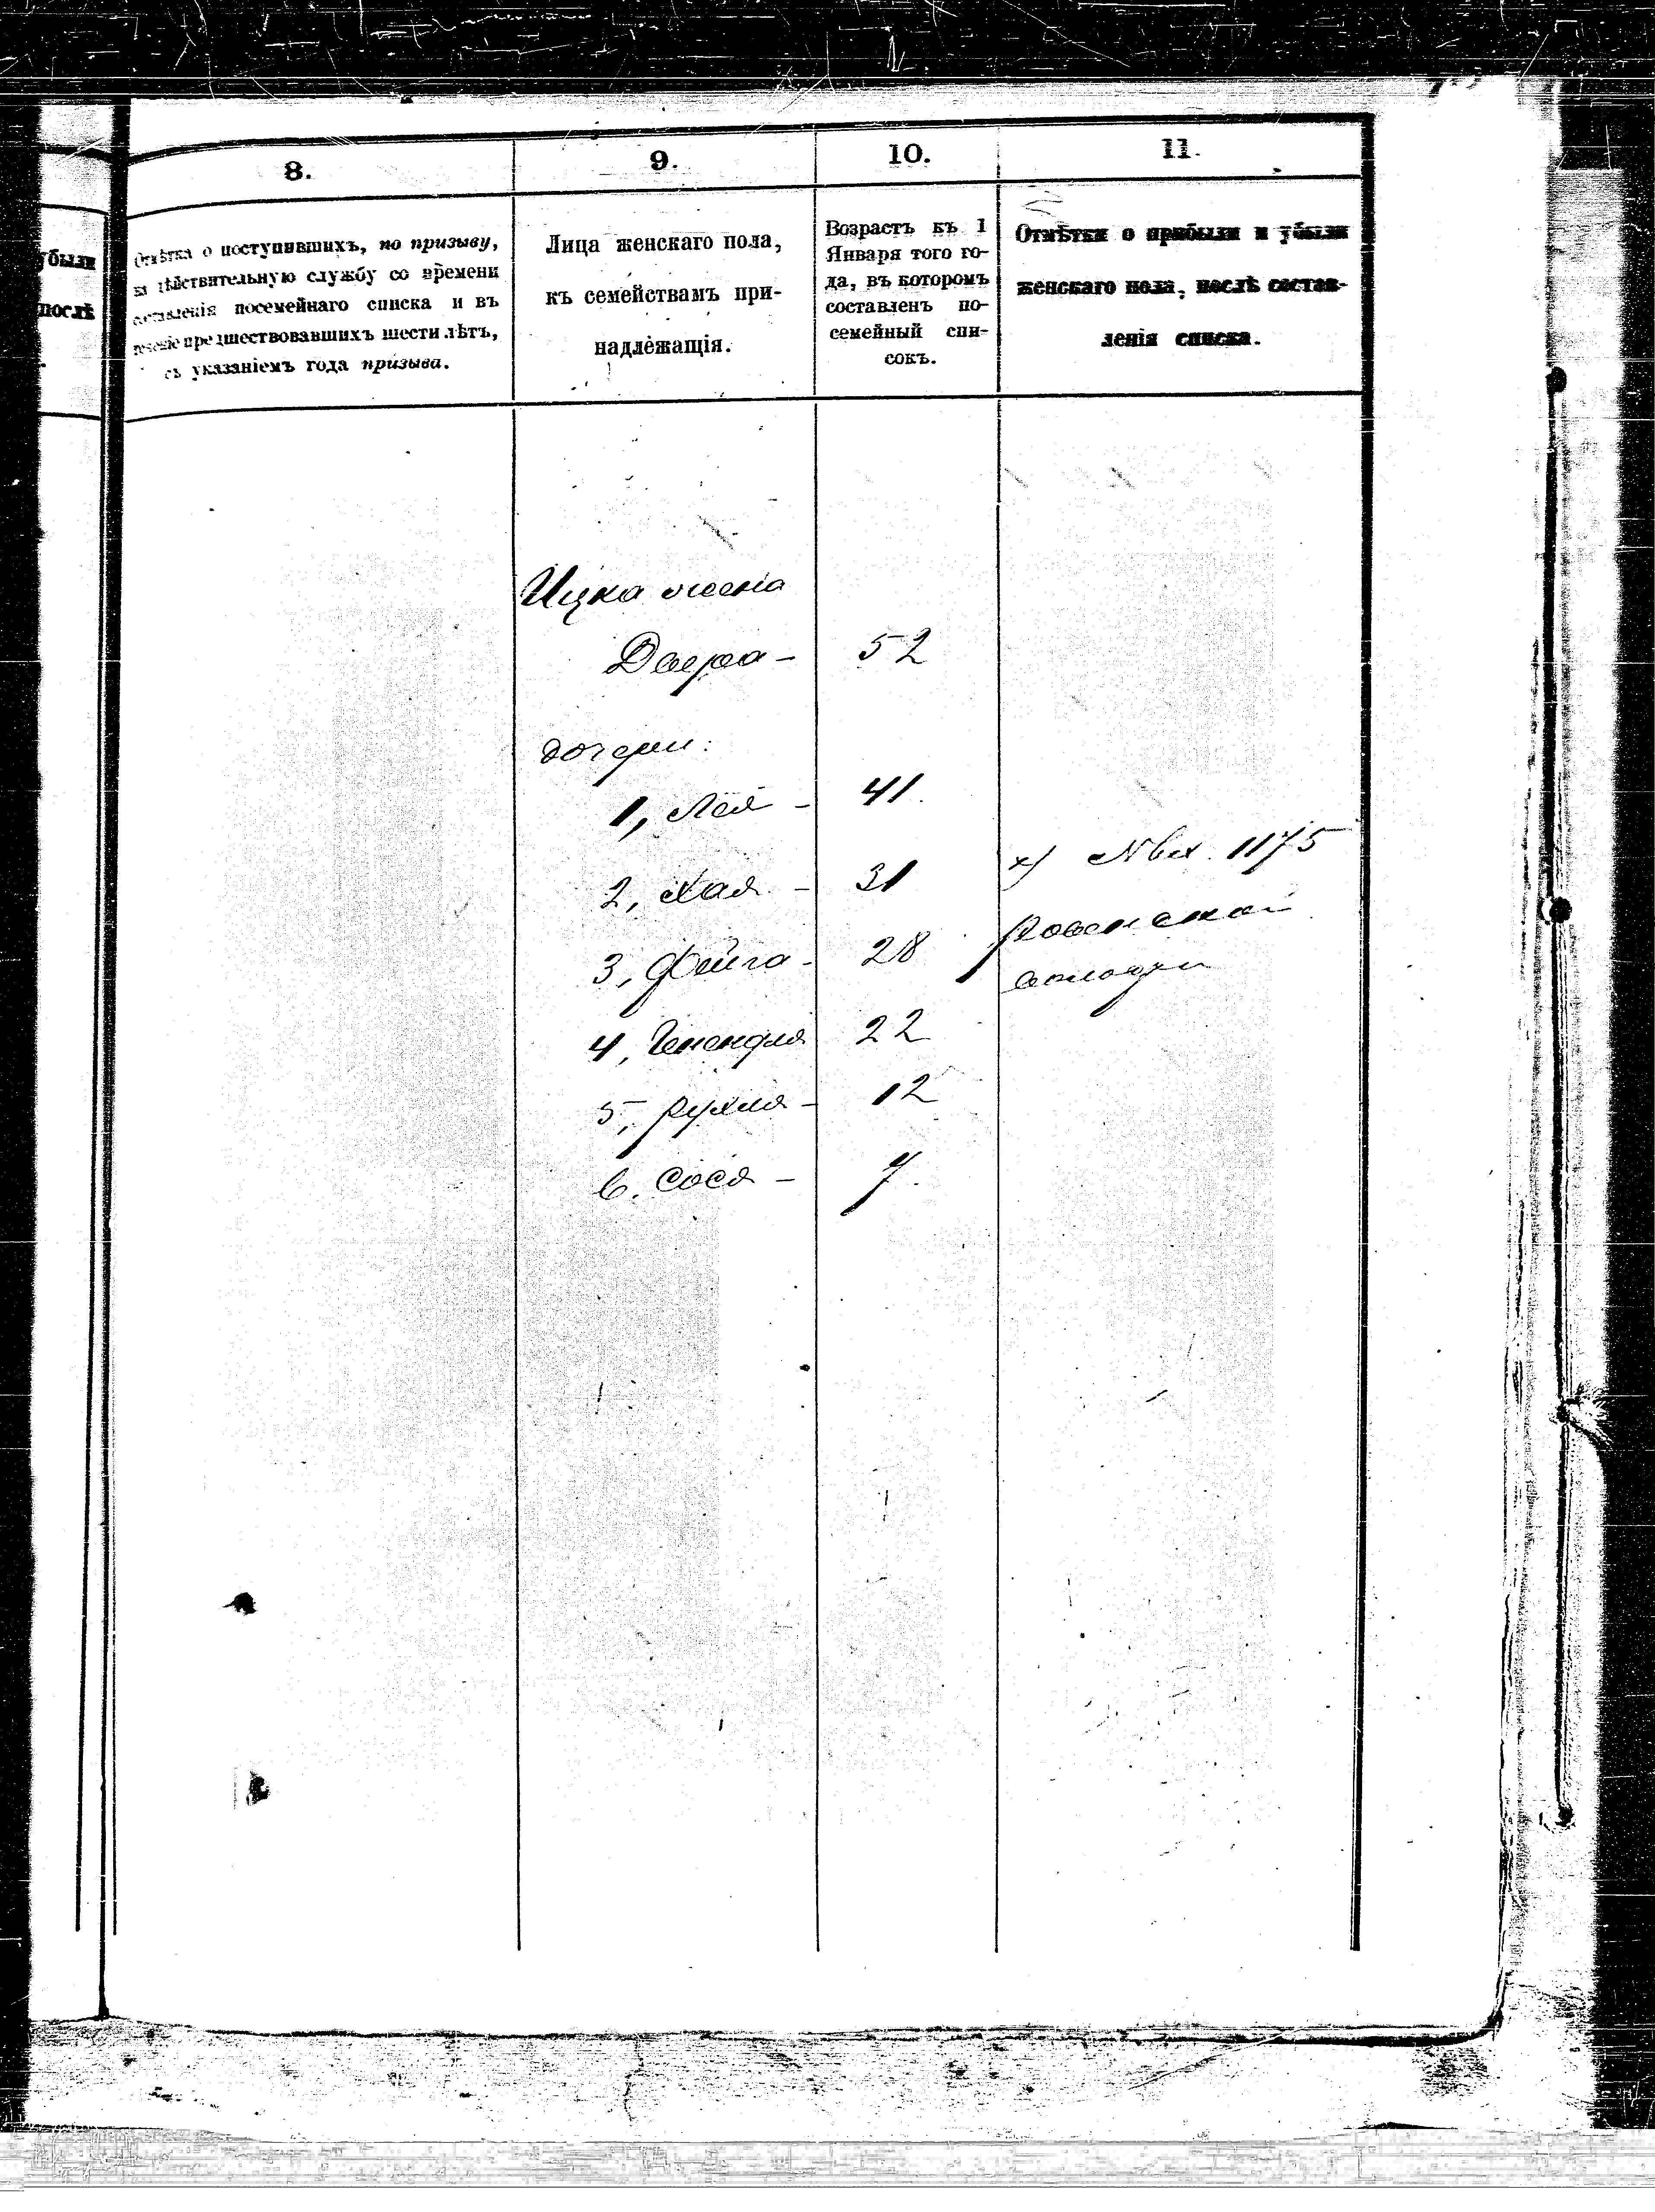 были
послѣ
8.
9.
10.
11.
Отмѣтка о поступившихъ, по призыву,
дѣйствительную службу со времени
составленія посемейнаго списка и въ
теченіе предшествовавшихъ шести лѣтъ,
съ указаніемъ года призыва.
Лица женскаго пола,
къ семействамъ при-
надлежащія.
Возрастъ къ 1
Января того го-
да, въ которомъ
составленъ по-
семейный спи-
сокъ.
Отмѣтки о прибыли и убыли
женскаго пола, послѣ состав-
ленія списка.
Ицка жена
Двера - 52
дочери:
1, Лея - 41.
2, Хая - 31
х) № вх. 1175
3, Фейга - 28
Ровенской
волости
4, Генендля 22
5, Рухля - 12
6. Сося - 7.